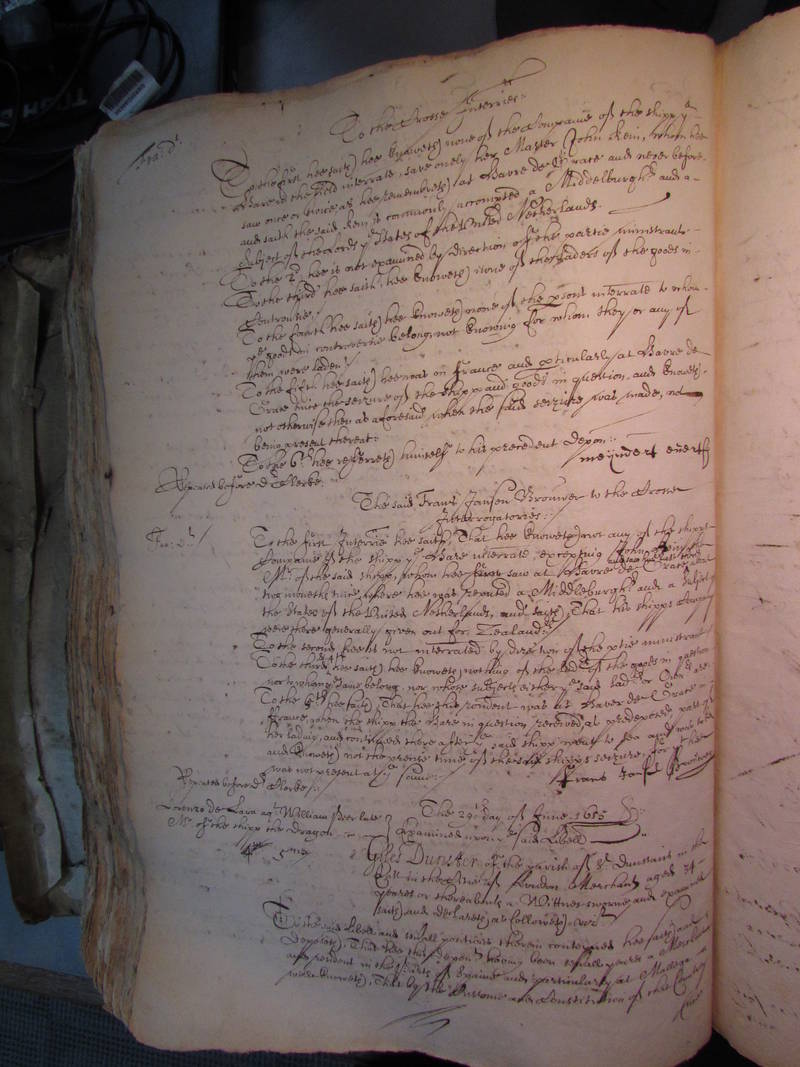 To the Crosse Interries:
To the first hee saith hee knoweth none of the Companie of the shipp ye
Hare the sd interrate, save onely her Master John Rem, whom hee
saw once or twice as hee remembreth at Havre de Grace and never before.
and saith the said Rem is commonly accompted a Middelburgh and a
Subject of the Lords ye States of the United Netherlands.
To the 2d hee is not examined by direction of the partie ministrant.
To the third hee saith hee knoweth none of the laders of the goods in
Controversie.
To the fourth hee saith hee knoweth none of the psons interrate to whom
ye goods in controversie belong, not knowing for whom they or any of
them were laden.
To the fift hee saith hee was in France and pticularly at Havre de
Grace since the seizure of the shipp and goods in question and knoweth
not otherwise then as aforesaid when the said seizure was made, not
being present thereat:
To the 6th hee referreth himselfe to his precedent depon:
Repeated before d Clerke.
meijndert evertß
The said Frans Jansen Brouwer to the Crosse
Interrogatories:
To the first Interrie hee saith, That hee knoweth not any of the shipps
Companie of the shipp ye Hare interrate, excepting John
Mr. of the said shipp, whom hee saw at Havre de Grace
two moneths since, where hee was reputed a Middleburgh and a Subject of
the States of the United Netherlands, and saith, That his shipps Company
were there generally given out for Zealand
To the second hee is not interrated by direction of the ptie ministrant
To the third hee saith, hee knoweth nothing of the laders of the goods in question
nor to whom ye same belong, nor whose subjects either ye said laders or Owners are
To the 5th hee saith, That hee this rondent was at Haver de Grace in
France when the shipp the Hare in question received as predeposed part of
her lading, and continued there after ye said shipp went to sea and was
and knoweth not the precise time of the said shipps seizure, for that hee
was not present at ye same:
Repeated before d Clerke:
frans Janß Brouwer
Lorenzo de Lara agt William Peerle
Mr. of the shipp the Dragon
The 29th day of June 1655
Examined upon ye said Libell
5us
Gyles Dunster of the parish of St Dunstans in the
East in the of London Merchant aged 34
yeares or thereabouts a Wittnes sworne and examined
saith and declareth as followeth, vizt
To the Libell and the positions therein contayned hee saith and
deposeth, That hee this depont having been small yeares a Merchant
and resident in the parts of Spaine and particularly at Mallega
well knoweth, That by the Custome and Constitution of that Country